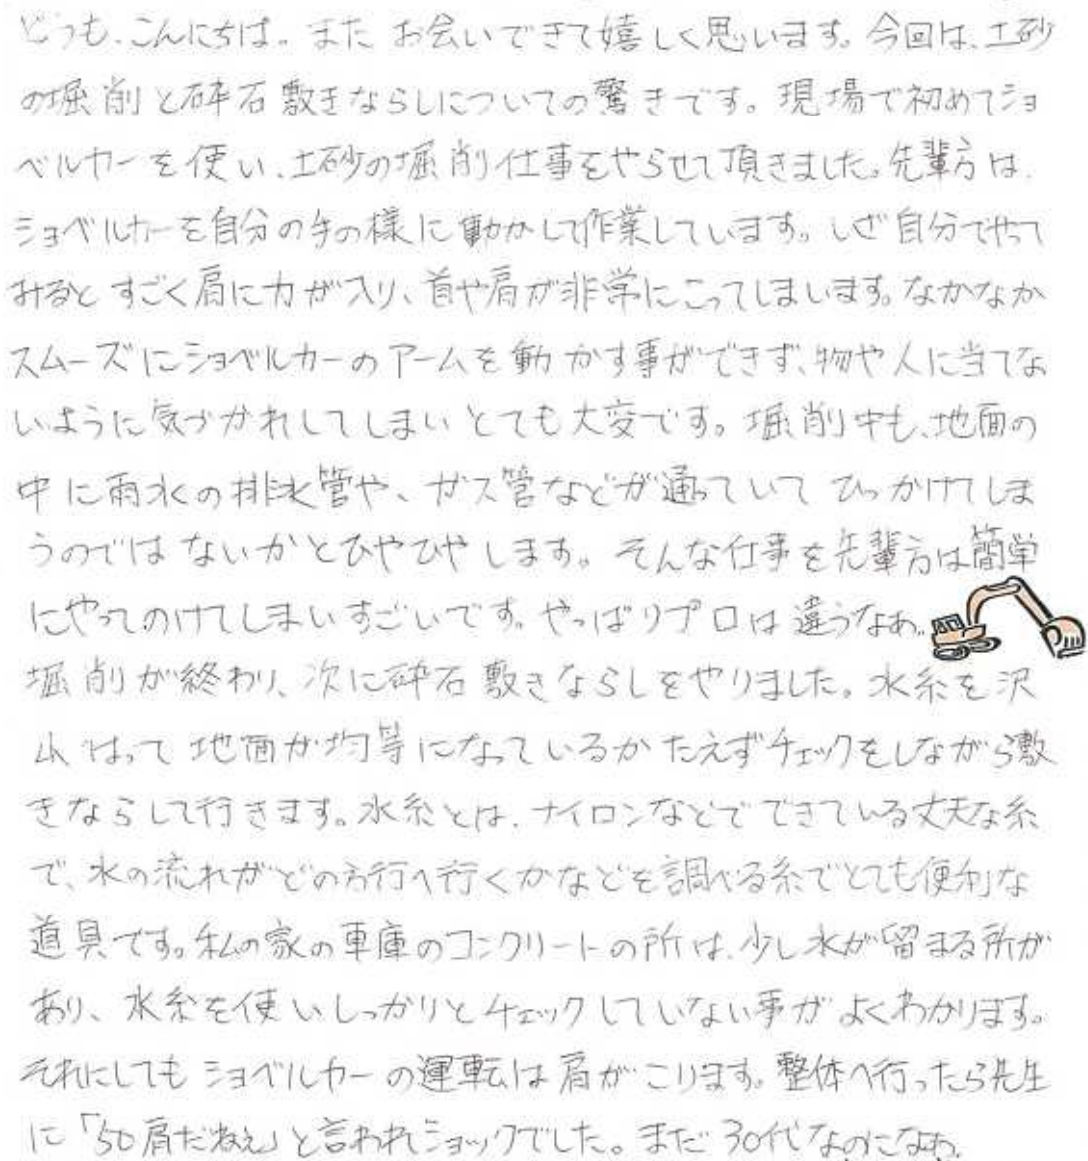 どうも、こんにちは。また お会いできて嬉しく思います。今回は、土砂
の堀削と砕石敷きならしについての驚きです。現場で初めてショ
ベルカーを使い、土砂の堀削仕事をやらせて頂きました。先輩方は、
ショベルカーを自分の手の様に動かして作業しています。いざ自分でやって
みるとすごく肩に力が入り、首や肩が非常にこってしまいます。なかなか
スムーズにショベルカーのアームを動かす事ができず、物や人に当てな
いように気づかれしてしまいとても大変です。堀削中も、地面の
中に雨水の排水管や、ガス管などが通っていて ひっかけてしま
うのではないかとひやひやします。そんな仕事を先輩方は簡単
にやってのけてしまいすごいです。やっぱりプロは違うなぁ。
堀削が終わり、次に砕石敷きならしをやりました。水糸を沢
山はって地面が均等になっているかたえずチェックをしながら敷
きならして行きます。水糸とは、ナイロンなどでできている丈夫な糸
で、水の流れがどの方行へ行くかなどを調べる糸でとても便利な
道具です。私の家の車庫のコンクリートの所は、少し水が留まる所が
あり、水糸を使いしっかりとチェックしていない事がよくわかります。
それにしてもショベルカーの運転は肩がこります。整体へ行ったら先生
に「50肩だねぇ」と言われショックでした。まだ30代なのになぁ。